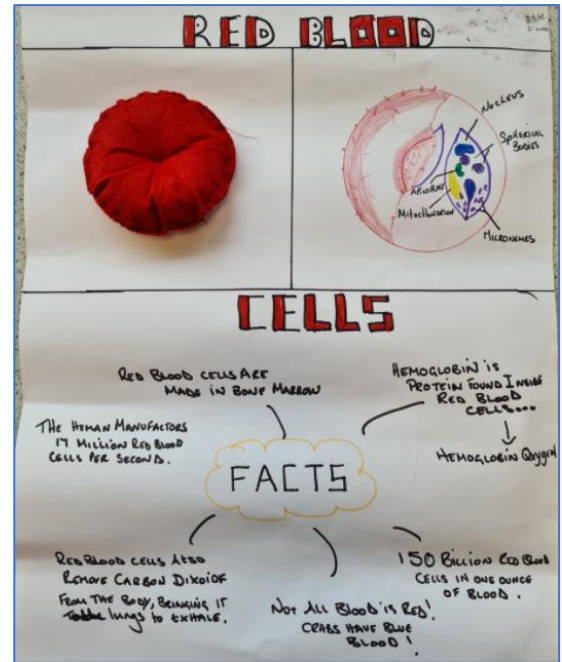 RED BLOOD
NUCLEUS
SPHERICAL
BODIES
MITOCHONDRION
MICRONEMES
CELLS
RED BLOOD CELLS ARE
MADE IN BONE MARROW
HEMOGLOBIN IS
PROTEIN FOUND INSIDE
RED BLOOD
CELLS...
HEMOGLOBIN OXYGEN
THE HUMAN MANUFACTORS
17 MILLION RED BLOOD
CELLS PER SECOND.
FACTS
RED BLOOD CELLS ALSO
REMOVE CARBON DIXOIDE
FROM THE BODY, BRINGING IT
lungs TO EXHALE.
NOT ALL BLOOD IS RED!
CRABS HAVE BLUE
BLOOD!
150 BILLION RED BLOOD
CELLS IN ONE OUNCE
OF BLOOD.